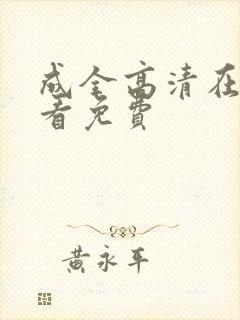 成全高清在
看免费
黄永平